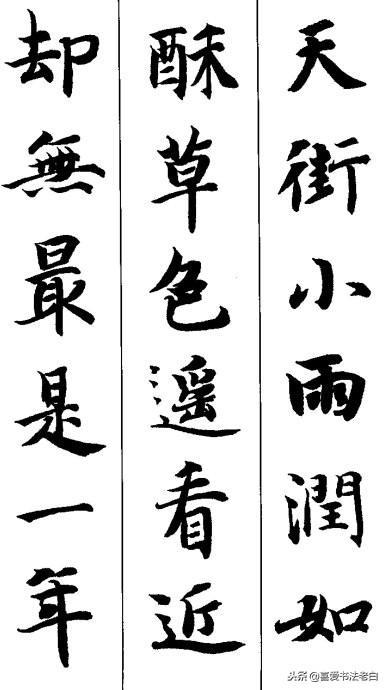 天街小雨潤如
酥草色遥看近
却無最是一年
头条@喜爱书法老白